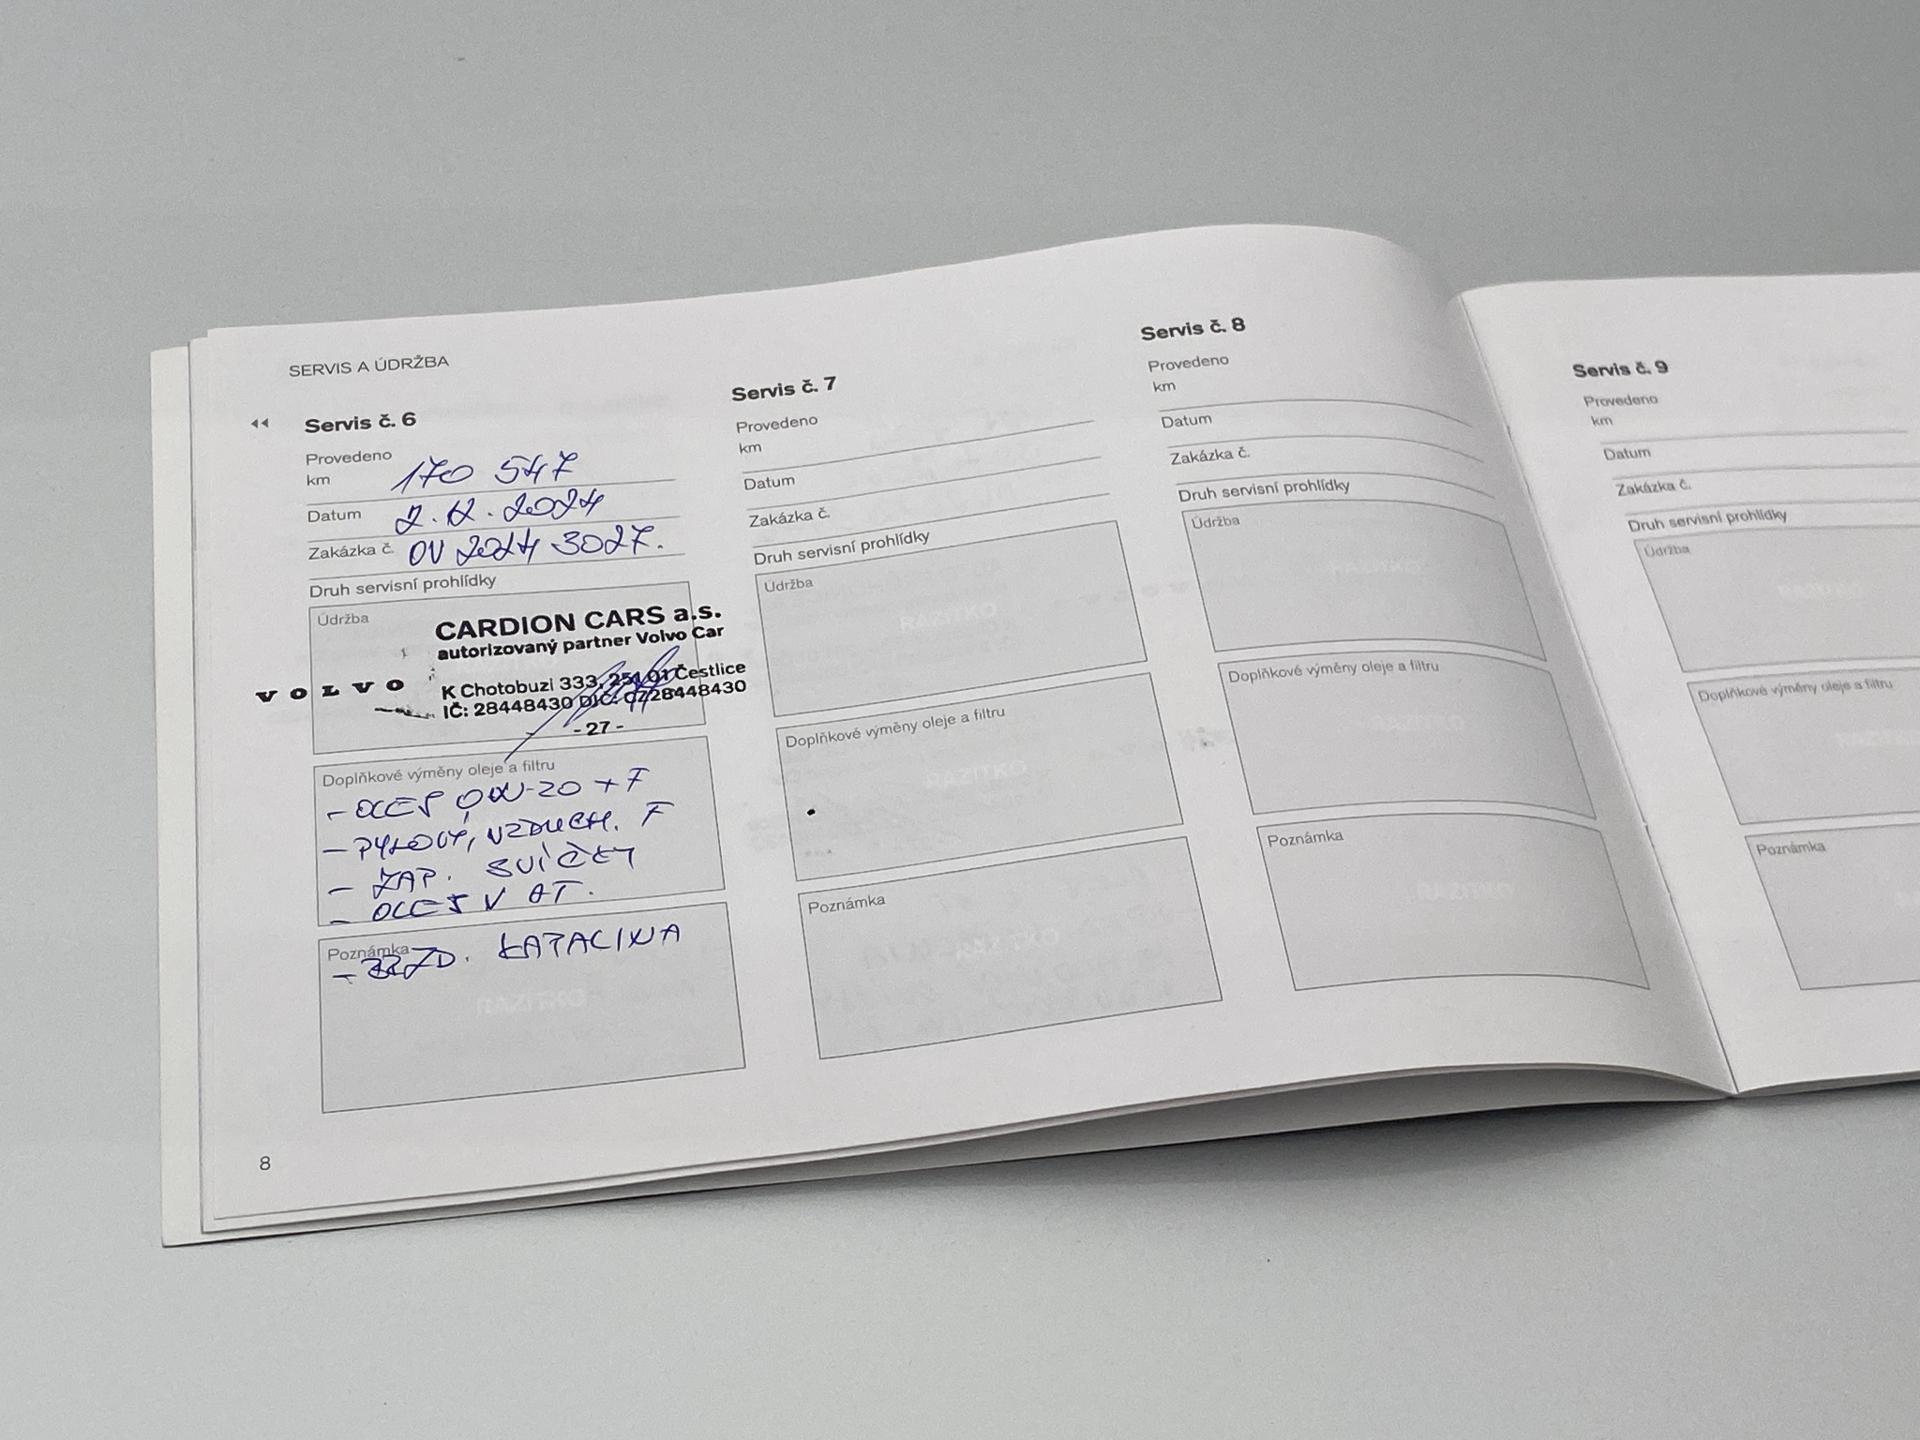 SERVIS A ÚDRŽBA
Servis č. 6
Provedeno
km 170 547
Datum 2.12.2024
Zakázka č. OV 2024 3027.
Druh servisní prohlídky
Údržba
VOLVO
CARDION CARS a.s.
autorizovaný partner Volvo Car
K Chotobuzi 333, 251 01 Čestlice
IČ: 28448430 DIČ: CZ28448430
- 27 -
Doplňkové výměny oleje a filtru
- OLEJ 0W-20 + F
- PYLOVÝ, VZDUCH. F
- ZAP. SVÍČKY
- OLEJ V AT.
Poznámka
- BRZD. KAPALINA
8
Servis č. 7
Provedeno
km
Datum
Zakázka č.
Druh servisní prohlídky
Údržba
Doplňkové výměny oleje a filtru
Poznámka
Servis č. 8
Provedeno
km
Datum
Zakázka č.
Druh servisní prohlídky
Údržba
Doplňkové výměny oleje a filtru
Poznámka
Servis č. 9
Provedeno
km
Datum
Zakázka č.
Druh servisní prohlídky
Údržba
Doplňkové výměny oleje a filtru
Poznámka